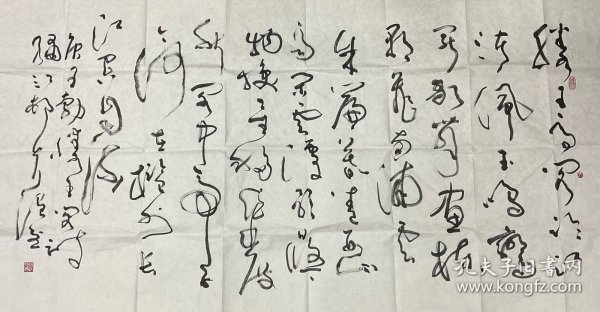 滕王高阁临江
渚佩玉鸣鸾
罢歌舞画栋
朝飞南浦云
朱簾暮卷西山
雨闲云潭影悠悠
物换星移几度
秋阁中帝子今
何在槛外长
江空自流
唐王勃滕王阁诗
孔夫子旧书网
www.kongfz.com